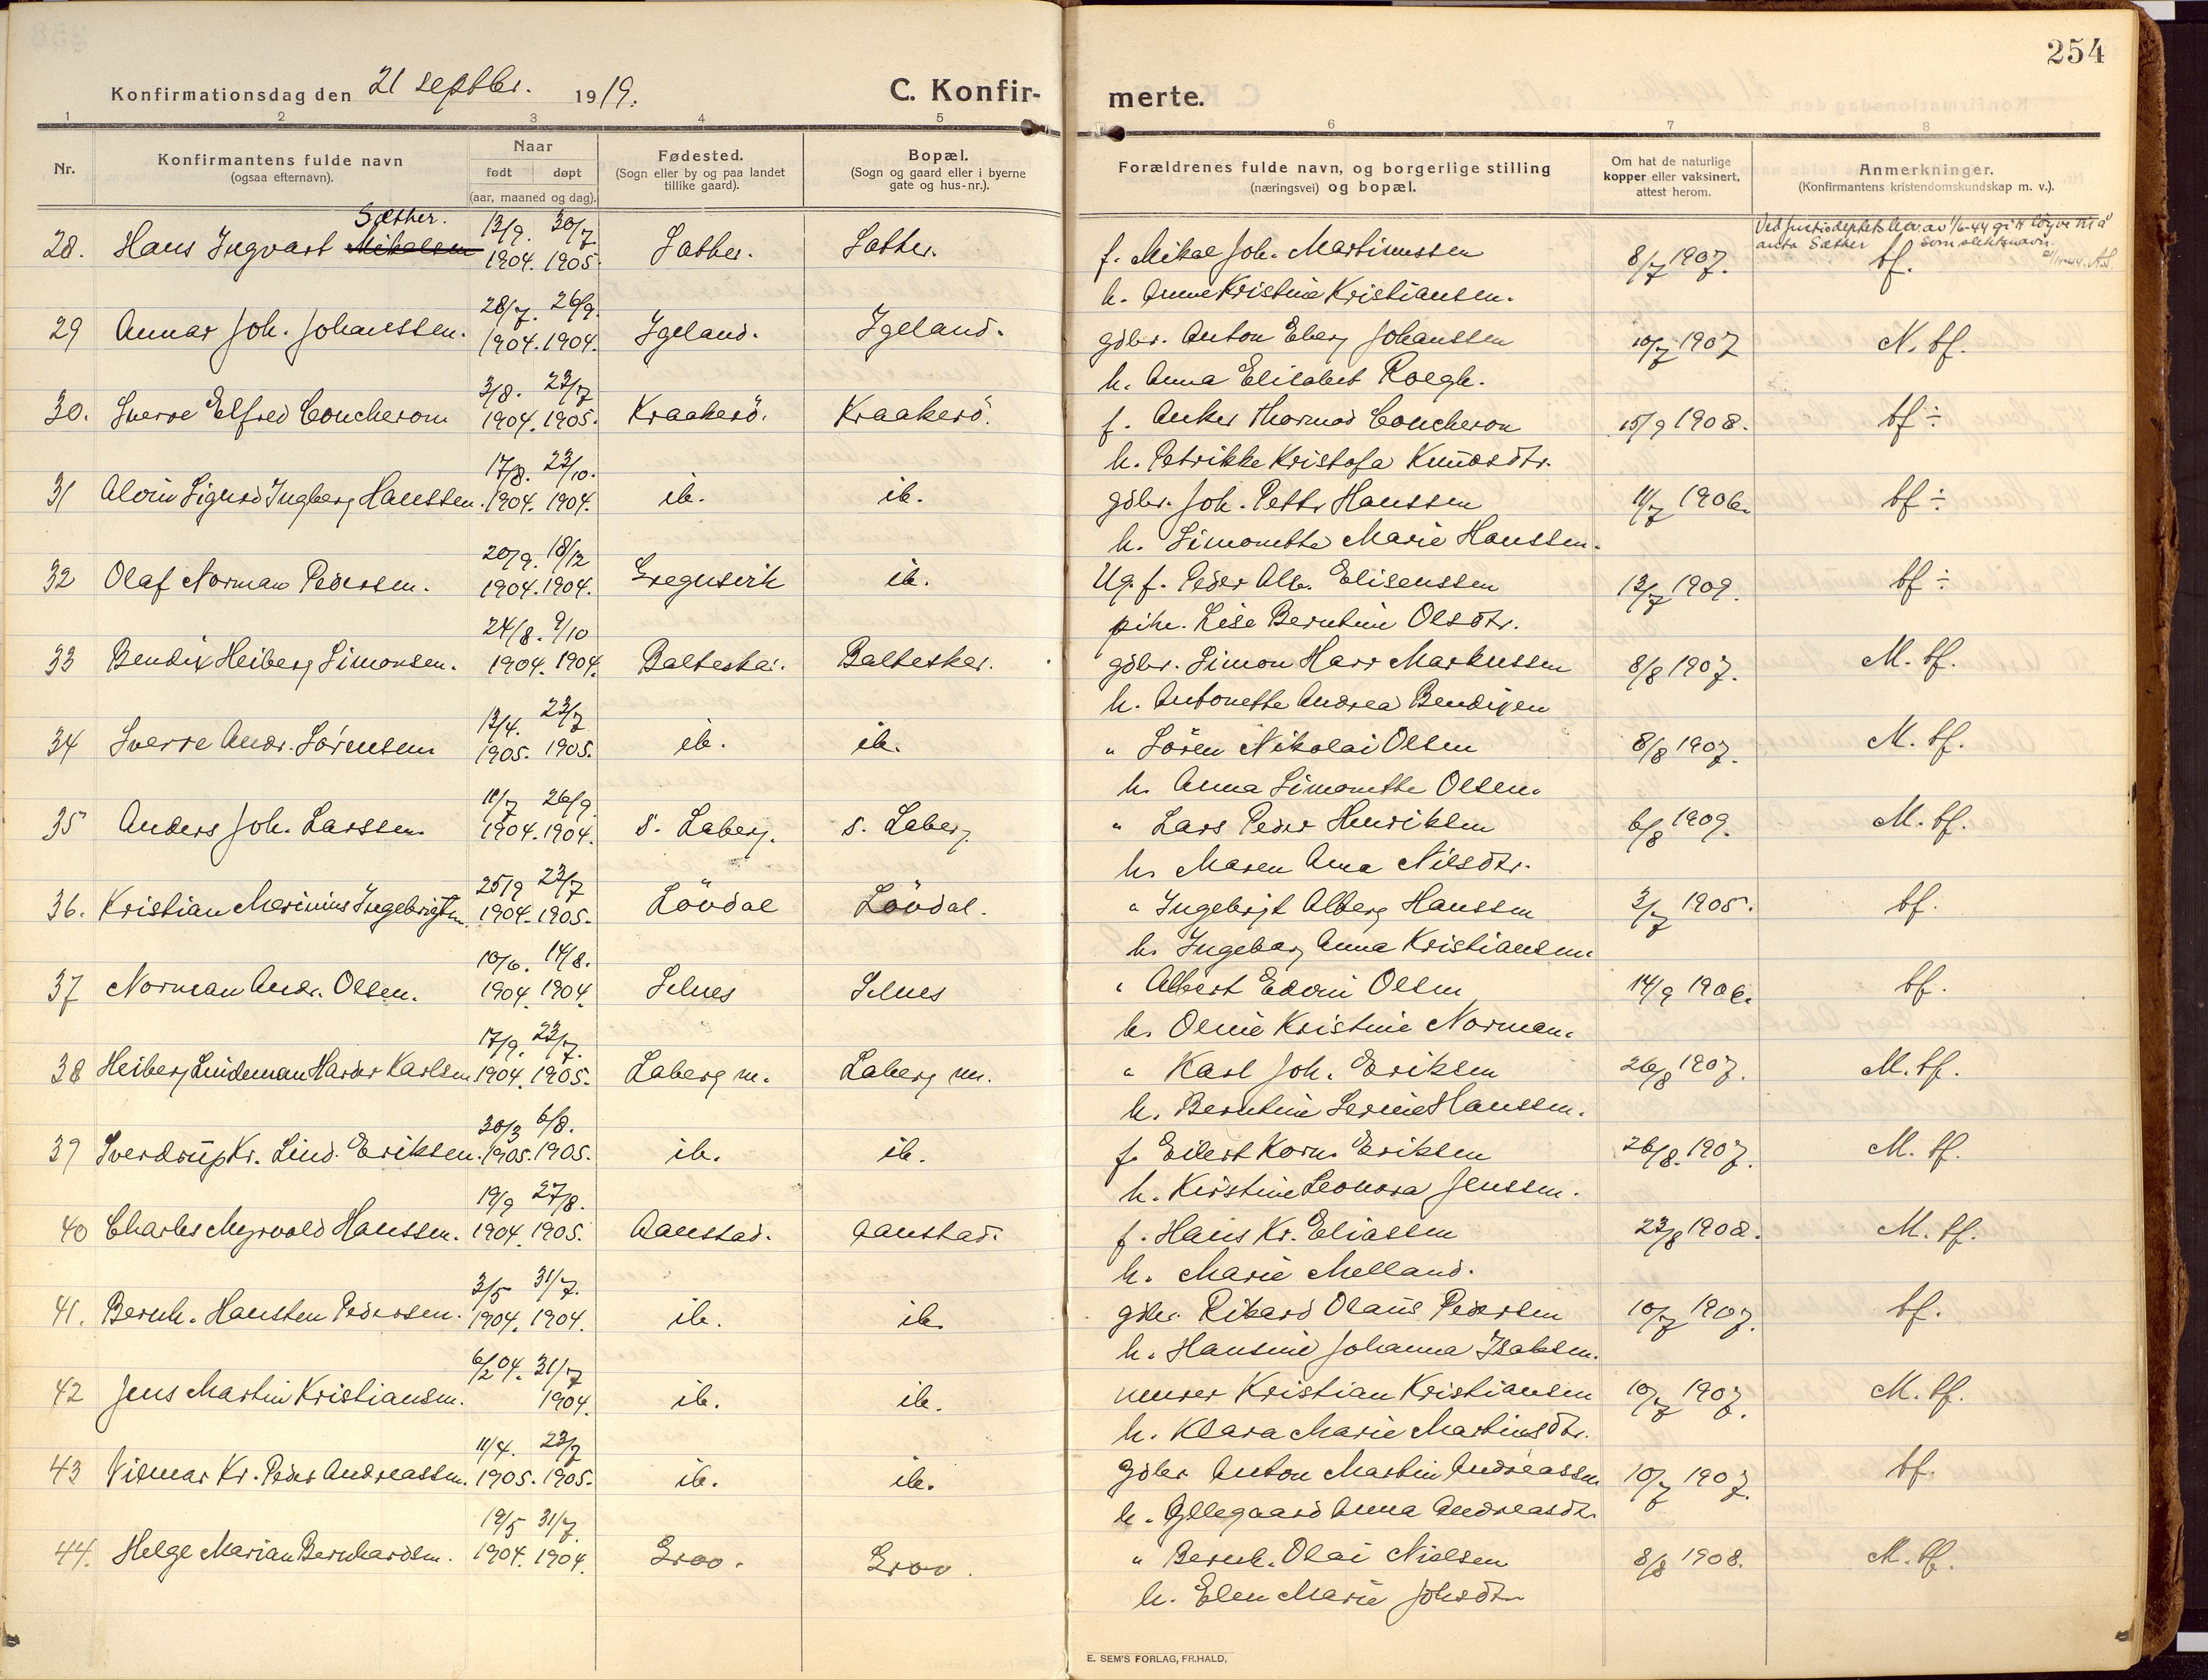 254
Konfirmationsdag den 21 septbr. 1919. C. Konfir-
merte.
1 2 3 4 5 6 7 8
Nr. Konfirmantens fulde navn (ogsaa efternavn). Naar født døpt (aar, maaned og dag). Fødested. (Sogn eller by og paa landet tillike gaard). Bopæl. (Sogn og gaard eller i byerne gate og hus-nr.). Forældrenes fulde navn, og borgerlige stilling (næringsvei) og bopæl. Om hat de naturlige kopper eller vaksinert, attest herom. Anmerkninger. (Konfirmantens kristendomskundskap m. v.).
Sæther. 13/9. 30/7 Ved av 1/6-44 gitt til å
28. Hans Ingvart Mikalsen 1904. 1905. Sæther. Sæther. f. Mikal Joh. Martinussen 8/7 1907. bf. anta Sæther som slektsnavn.
h. Anne Kristine Kristiansen.
28/7. 26/9.
29 Annar Joh. Johanssen. 1904. 1904. Igeland. Igeland. gdbr. Anton Eberg Johanssen 10/7 1907 N. bf.
h. Anna Elisabet Roegh.
3/8. 23/7
30. Sverre Elfred Coucheron 1904. 1905. Kraakerö. Kraakerö. f. Anker Thormod Coucheron 15/9 1908. bf ÷
h. Petrikke Kristofa Knudsdtr.
17/8. 23/10.
31 Alvin Sigurd Ingberg Hanssen. 1904. 1904. ib. ib. gdbr. Joh. Petter Hanssen 11/7 1906. bf ÷
h. Simonette Marie Hanssen.
20/9. 18/12
32 Olaf Norman Pedersen. 1904. 1904. Gregusvik ib. Ug. f. Peder Alb. Elisenssen 13/7 1909. bf ÷
pike. Lise Berntine Olsdtr.
24/8. 9/10
33 Bendix Heiberg Simonsen. 1904. 1904. Balteskar. Balteskar. gdbr. Simon Harr Markussen 8/8 1907. M. bf.
h. Antonette Andrea Bendixen
13/4. 23/7
34 Sverre Andr. Sörensen 1905. 1905. ib. ib. " Sören Nikolai Olsen 8/8 1907. M. bf.
h. Anna Simonette Olsen.
11/7 26/9.
35 Anders Joh. Larssen. 1904. 1904. s. Laberg. s. Laberg " Lars Peder Henriksen 6/8 1909. M. bf.
h. Maren Ana Nilsdtr.
25/9 23/7
36. Kristian Marinius Ingebrigtsen. 1904. 1905. Lövdal Lövdal. " Ingebrigt Alberg Hanssen 3/7 1905. bf.
h. Ingeborg Anna Kristiansen.
10/6. 14/8.
37 Norman Andr. Olsen. 1904. 1904. Selnes Selnes " Albert Edvin Olsen 14/9 1906. bf.
h. Oline Kristine Norman.
17/9. 23/7.
38 Heiberg Lindeman Harder Karlsen 1904. 1905. Laberg n. Laberg n. " Karl Joh. Eriksen 26/8 1907. M. bf.
h. Berntine Serine Hanssen.
30/3 6/8.
39 Sverdrup Kr. Lind. Eriksen. 1905. 1905. ib. ib. f. Eilert Korn. Eriksen 26/8. 1907. M. bf.
h. Kirstine Leonora Jenssen.
19/9 27/8.
40 Charles Myrvold Hanssen. 1904. 1905. Aanstad. Aanstad. f. Hans Kr. Eliassen 23/8 1908. M. bf.
h. Marie Melland.
3/5 31/7.
41. Bernh. Hansten Pedersen. 1904. 1904. ib. ib. gdbr. Rikard Olaus Pedersen 10/7 1907. bf.
h. Hansine Johanna Isaksen.
6/2 04. 31/7
42 Jens Martin Kristiansen. 1904. ib. ib. murer Kristian Kristiansen 10/7 1907. M. bf.
h. Klara Marie Martinsdtr.
11/4. 23/7
43 Vilmar Kr. Peder Andreassen. 1905. 1905. ib. ib. gdbr Anton Martin Andreassen 10/7 1907. bf.
h. Gjllegaard Anna Andreasdtr
19/5 31/7.
44. Helge Marian Bernhardsen. 1904. 1904. Grov. Grov. " Bernh. Olai Nielsen 8/8 1908. M. bf.
h. Elen Marie Johsdtr
E. SEM'S FORLAG, FR.HALD.